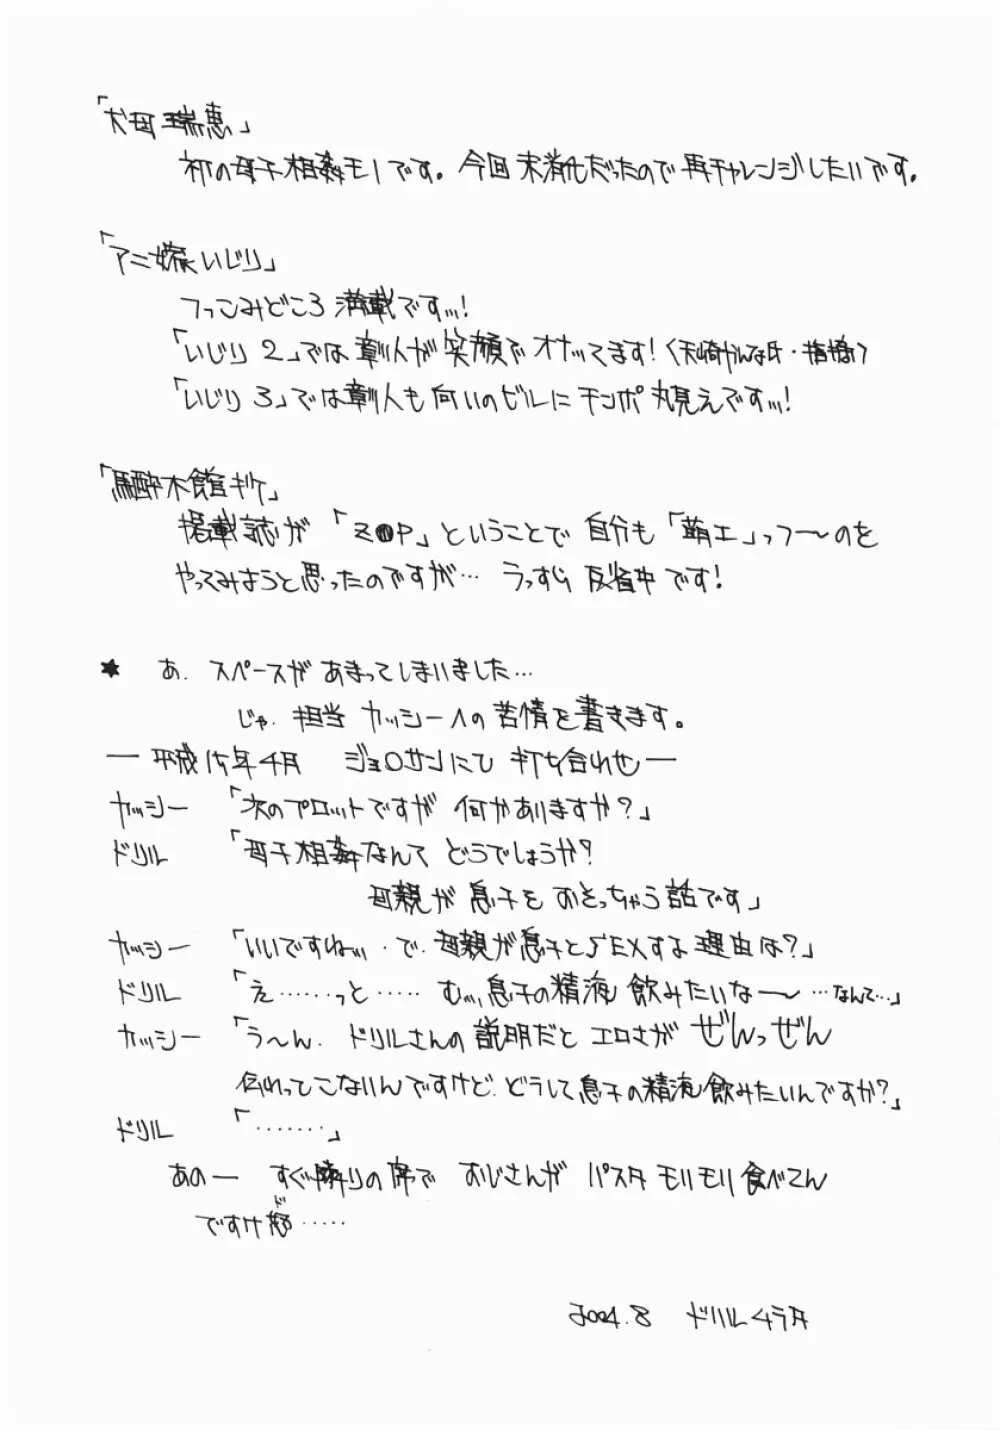 「犬母瑞恵」
初の母子相姦モノです。今回未消化だったので再チャレンジしたいです。
「アニ嫁いじり」
つっこみどころ満載ですッ!
「いじり2」では彰人が笑顔でオナってます!(天崎かんな氏・指摘)
「いじり3」では彰人も向いのビルにチンポ丸見えですッ!
「馬酔木館ギケ」
掲載誌が「Z●P」ということで自分も「萌エ」っつ〜のを
やってみようと思ったのですが… うっすら反省中です!
★ あ、スペースがあまってしまいました…
じゃ、担当カッシーへの苦情を書きます。
― 平成15年4月 ジョ○サンにて打ち合わせ ―
カッシー 「次のプロットですが何かありますか?」
ドリル 「母子相姦なんてどうでしょうか?
母親が息子をおそっちゃう話です」
カッシー 「いいですねッ・で、母親が息子とSEXする理由は?」
ドリル 「え……っと…… むッ、息子の精液飲みたいな〜…なんて…」
カッシー 「う〜ん、ドリルさんの説明だとエロさがぜんっぜん
伝わってこないんですけど、どうして息子の精液飲みたいんですか?」
ドリル 「……」
あのー すぐ隣りの席でおじさんがパスタモリモリ食べてん
ですけど……
2004.8 ドリルムラタ